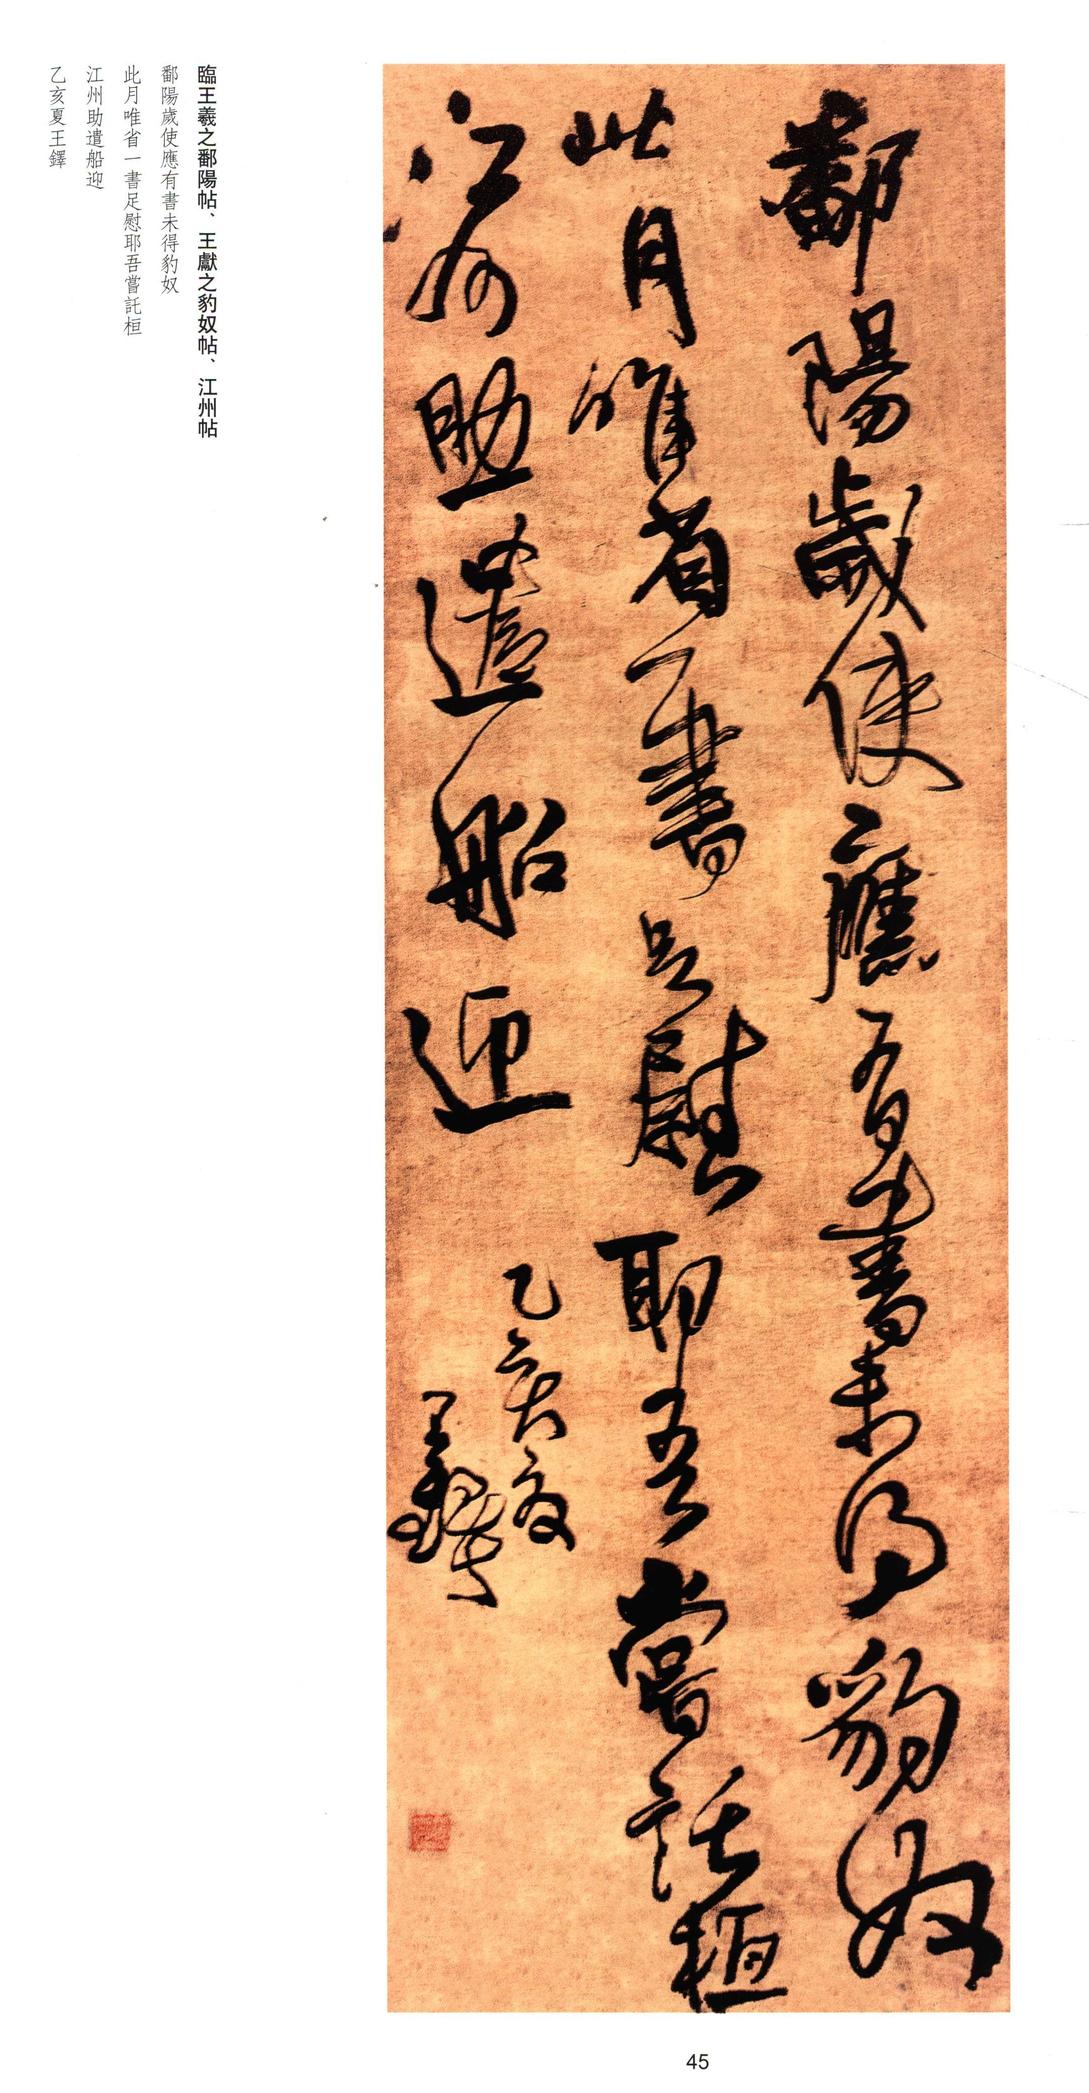 鄱陽歲使應有書未得豹奴
此月唯省一書足慰耶吾嘗託桓
江州助遣船迎
乙亥夏
王鐸
臨王羲之鄱陽帖、王獻之豹奴帖、江州帖
鄱陽歲使應有書未得豹奴
此月唯省一書足慰耶吾嘗託桓
江州助遣船迎
乙亥夏王鐸
45